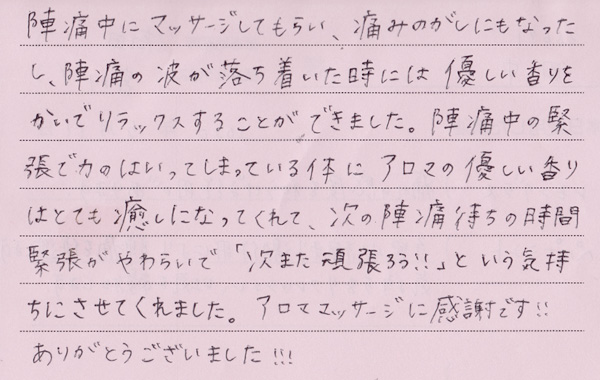 陣痛中にマッサージしてもらい、痛みのがしにもなった
し、陣痛の波が落ち着いた時には優しい香りを
かいでリラックスすることができました。陣痛中の緊
張で力のはいってしまっている体にアロマの優しい香り
はとても癒しになってくれて、次の陣痛待ちの時間
緊張がやわらいで「次また頑張ろう!!」という気持
ちにさせてくれました。アロママッサージに感謝です!!
ありがとうございました!!!